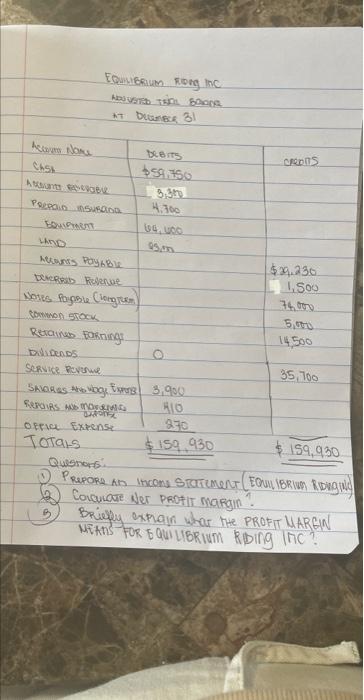 EQUILIBRIUM RIDING INC
ADJUSTED TRIAL BALANCE
AT DECEMBER 31
Account Name DEBITS CREDITS
CASH $59,750
Accounts Receivable 3,300
PREPAID INSURANCE 4,700
EQUIPMENT 64,400
LAND
Accounts PAYABLE $29,230
DEFERRED Revenue 1,500
NOTES PAYABLE (longterm) 74,000
COMMON STOCK 5,000
RETAINED EARNINGS 14,500
DIVIDENDS O
SERVICE REVENUE 35,700
SALARIES AND WAGE EXPENSE 3,900
REPAIRS AND MAINTENANCE EXPENSE 410
OFFICE EXPENSE 270
TOTALS $159,930 $159,930
Questions:
① PREPARE AN INCOME STATEMENT (EQUILIBRIUM RIDING INC)
② CALCULATE NET PROFIT MARGIN?
③ BRIEFLY explain what THE PROFIT MARGIN
MEANS FOR EQUILIBRIUM RIDING INC?